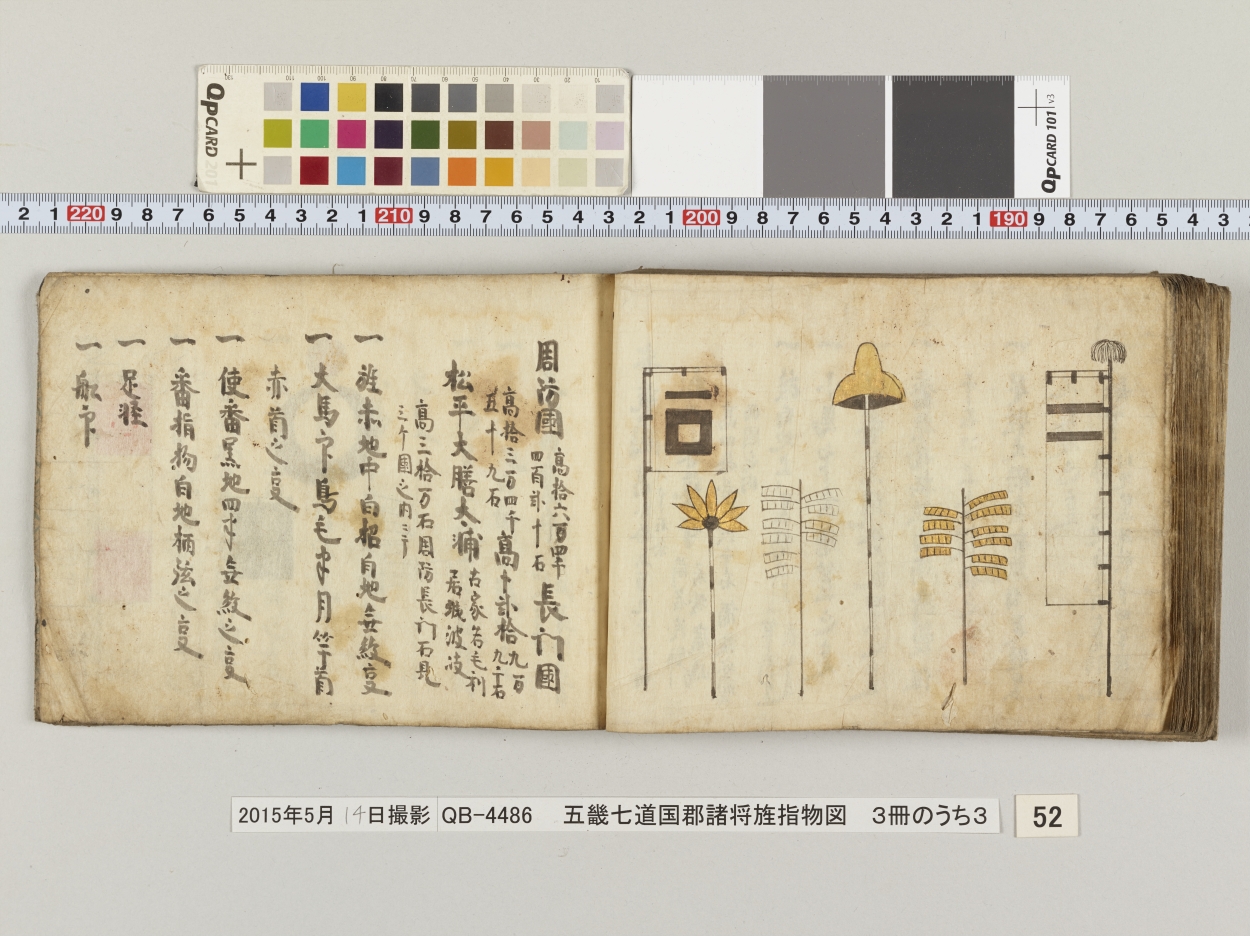 QPCARD 201
QPCARD 101 v3
2 1 220 9 8 7 6 5 4 3 2 1 210 9 8 7 6 5 4 3 2 1 200 9 8 7 6 5 4 3 2 1 190 9 8 7 6 5 4 3
周防國 高拾六万四千
四百弐十石
長門國
高拾三万四千
五十九石
高十弐拾九万
松平大膳大浦
居城波
高三拾一万石周防長門石見
三ケ國之内
一 旌赤地中白招白地無紋
一 大馬印鳥毛半月竿首
赤首之
一 使番黒地四半無紋之
一 番指物白地
一 足軽
一 舩印
2015年5月14日撮影 QB-4486 五畿七道国郡諸将旌指物図 3冊のうち3
52